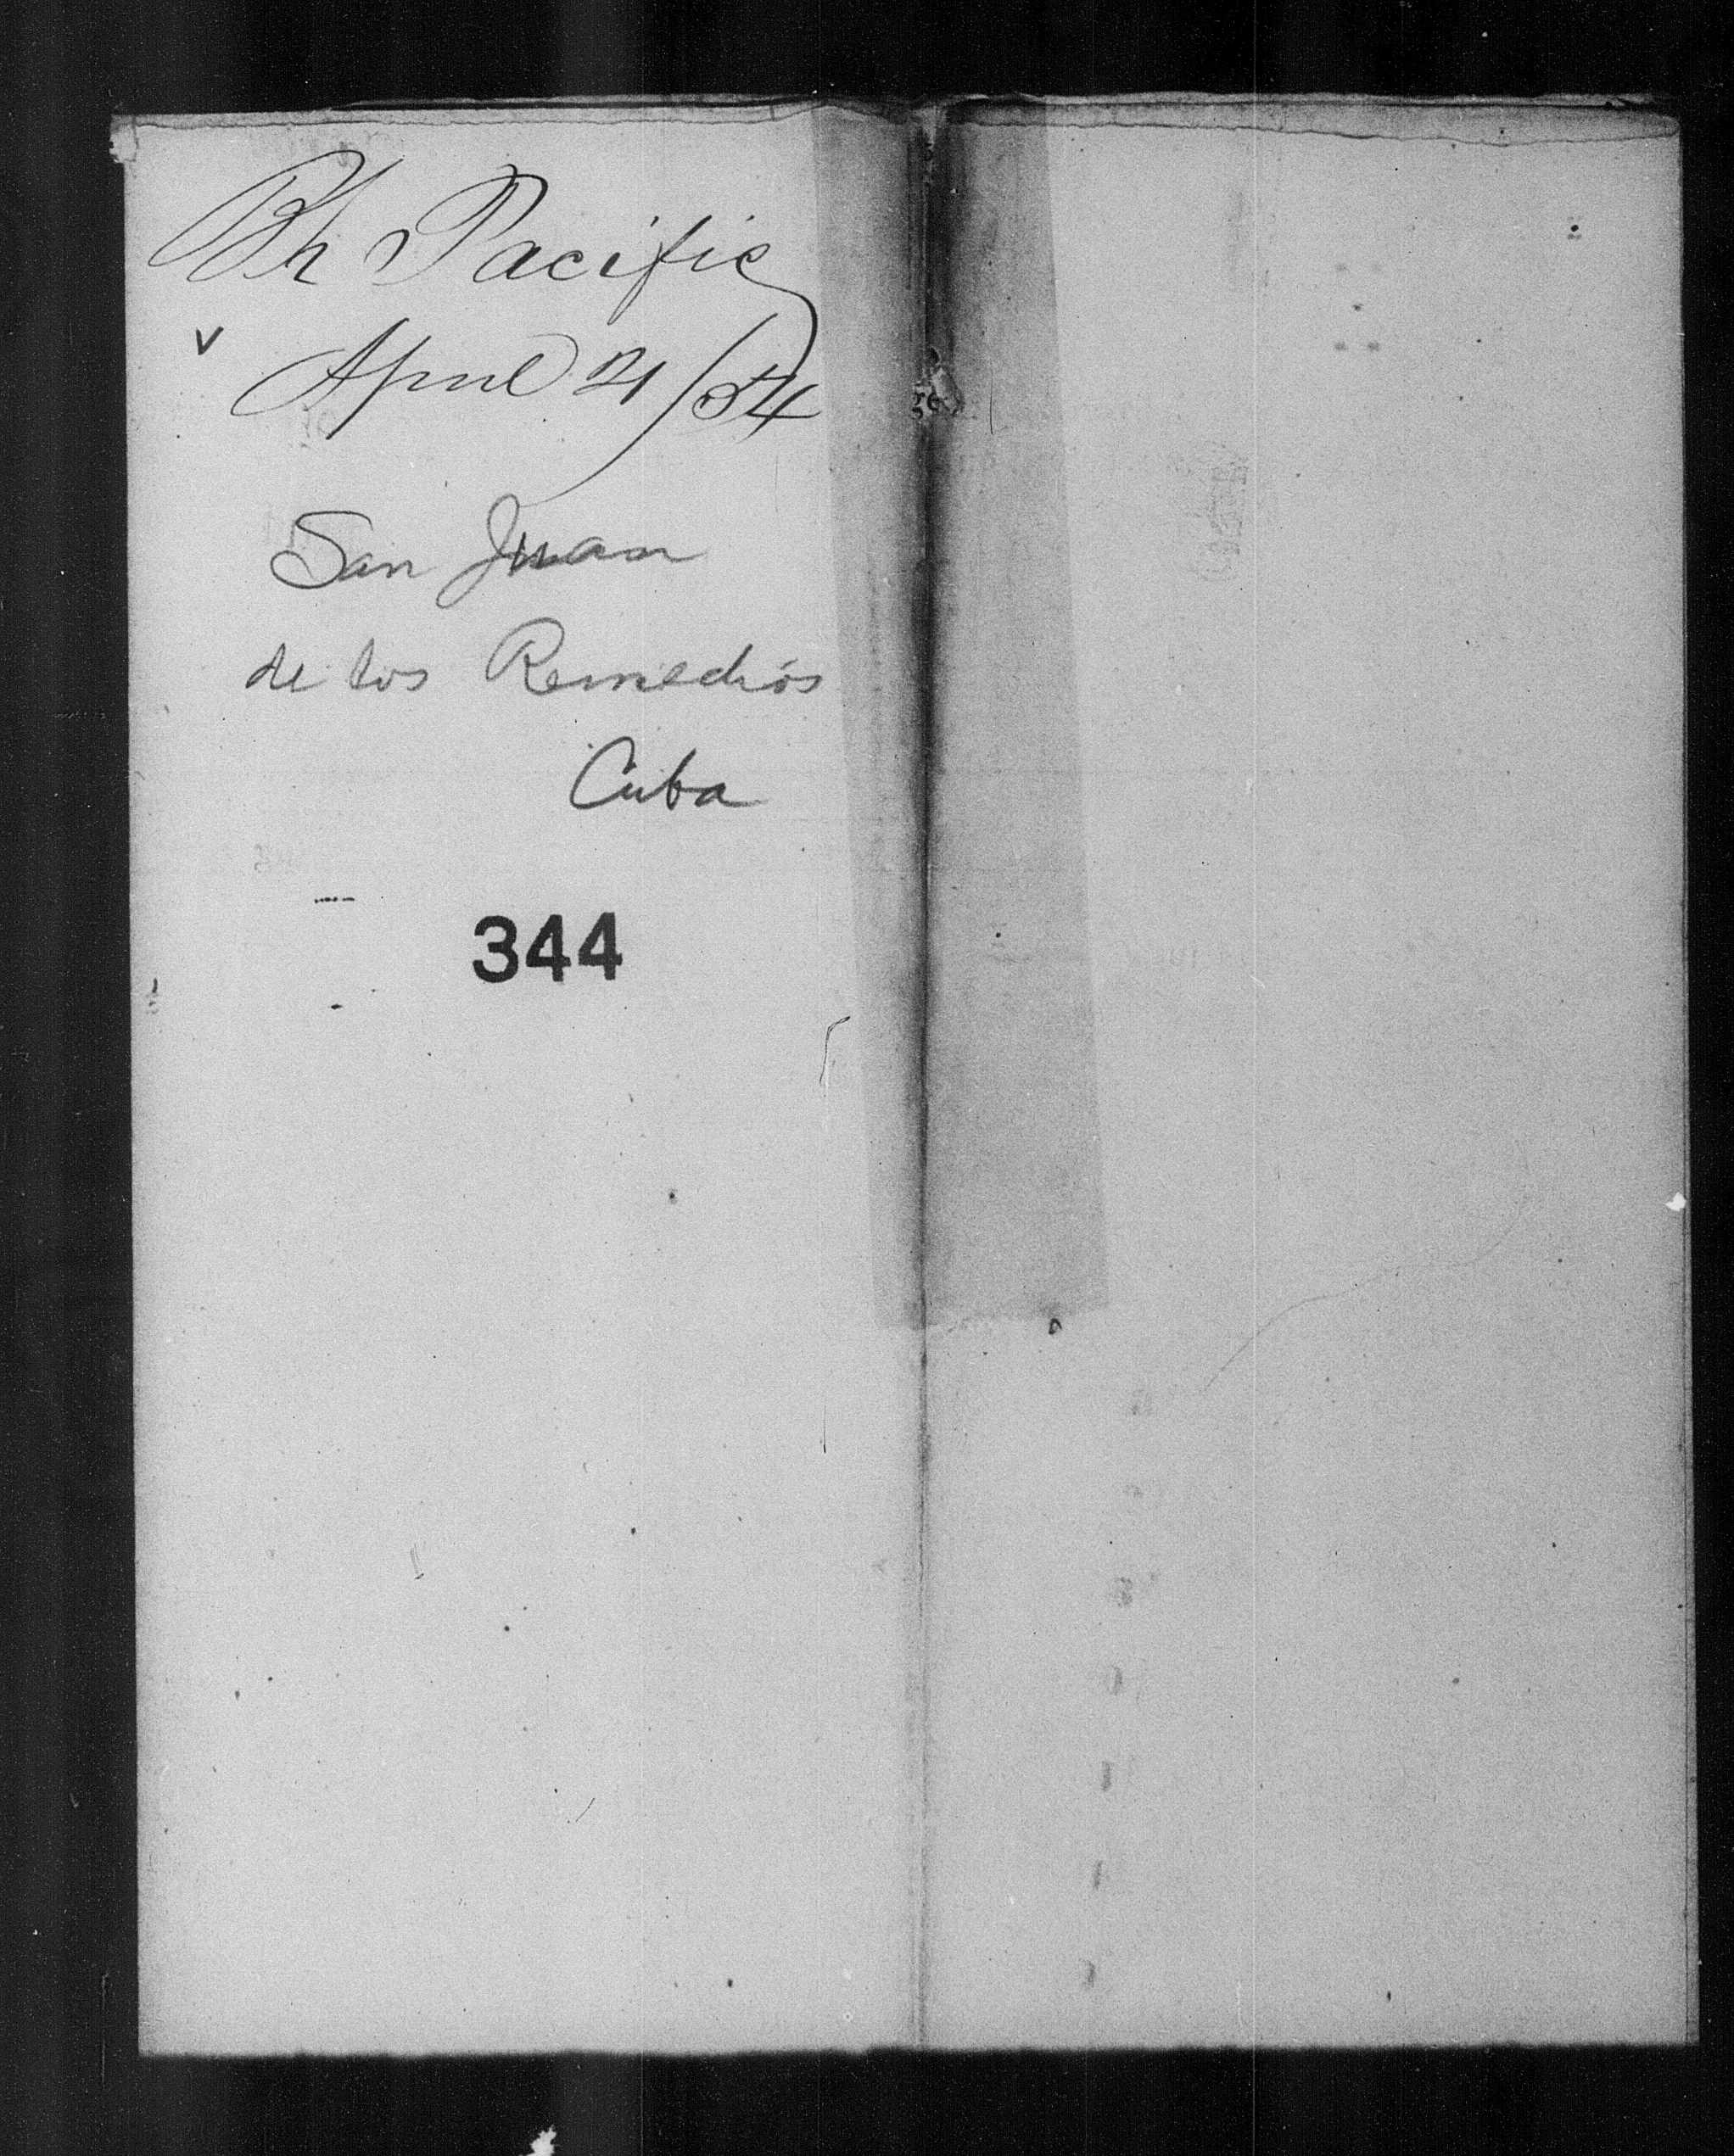 Bk Pacific
v
April 21/54
San Juan
de los Remedios
Cuba
344